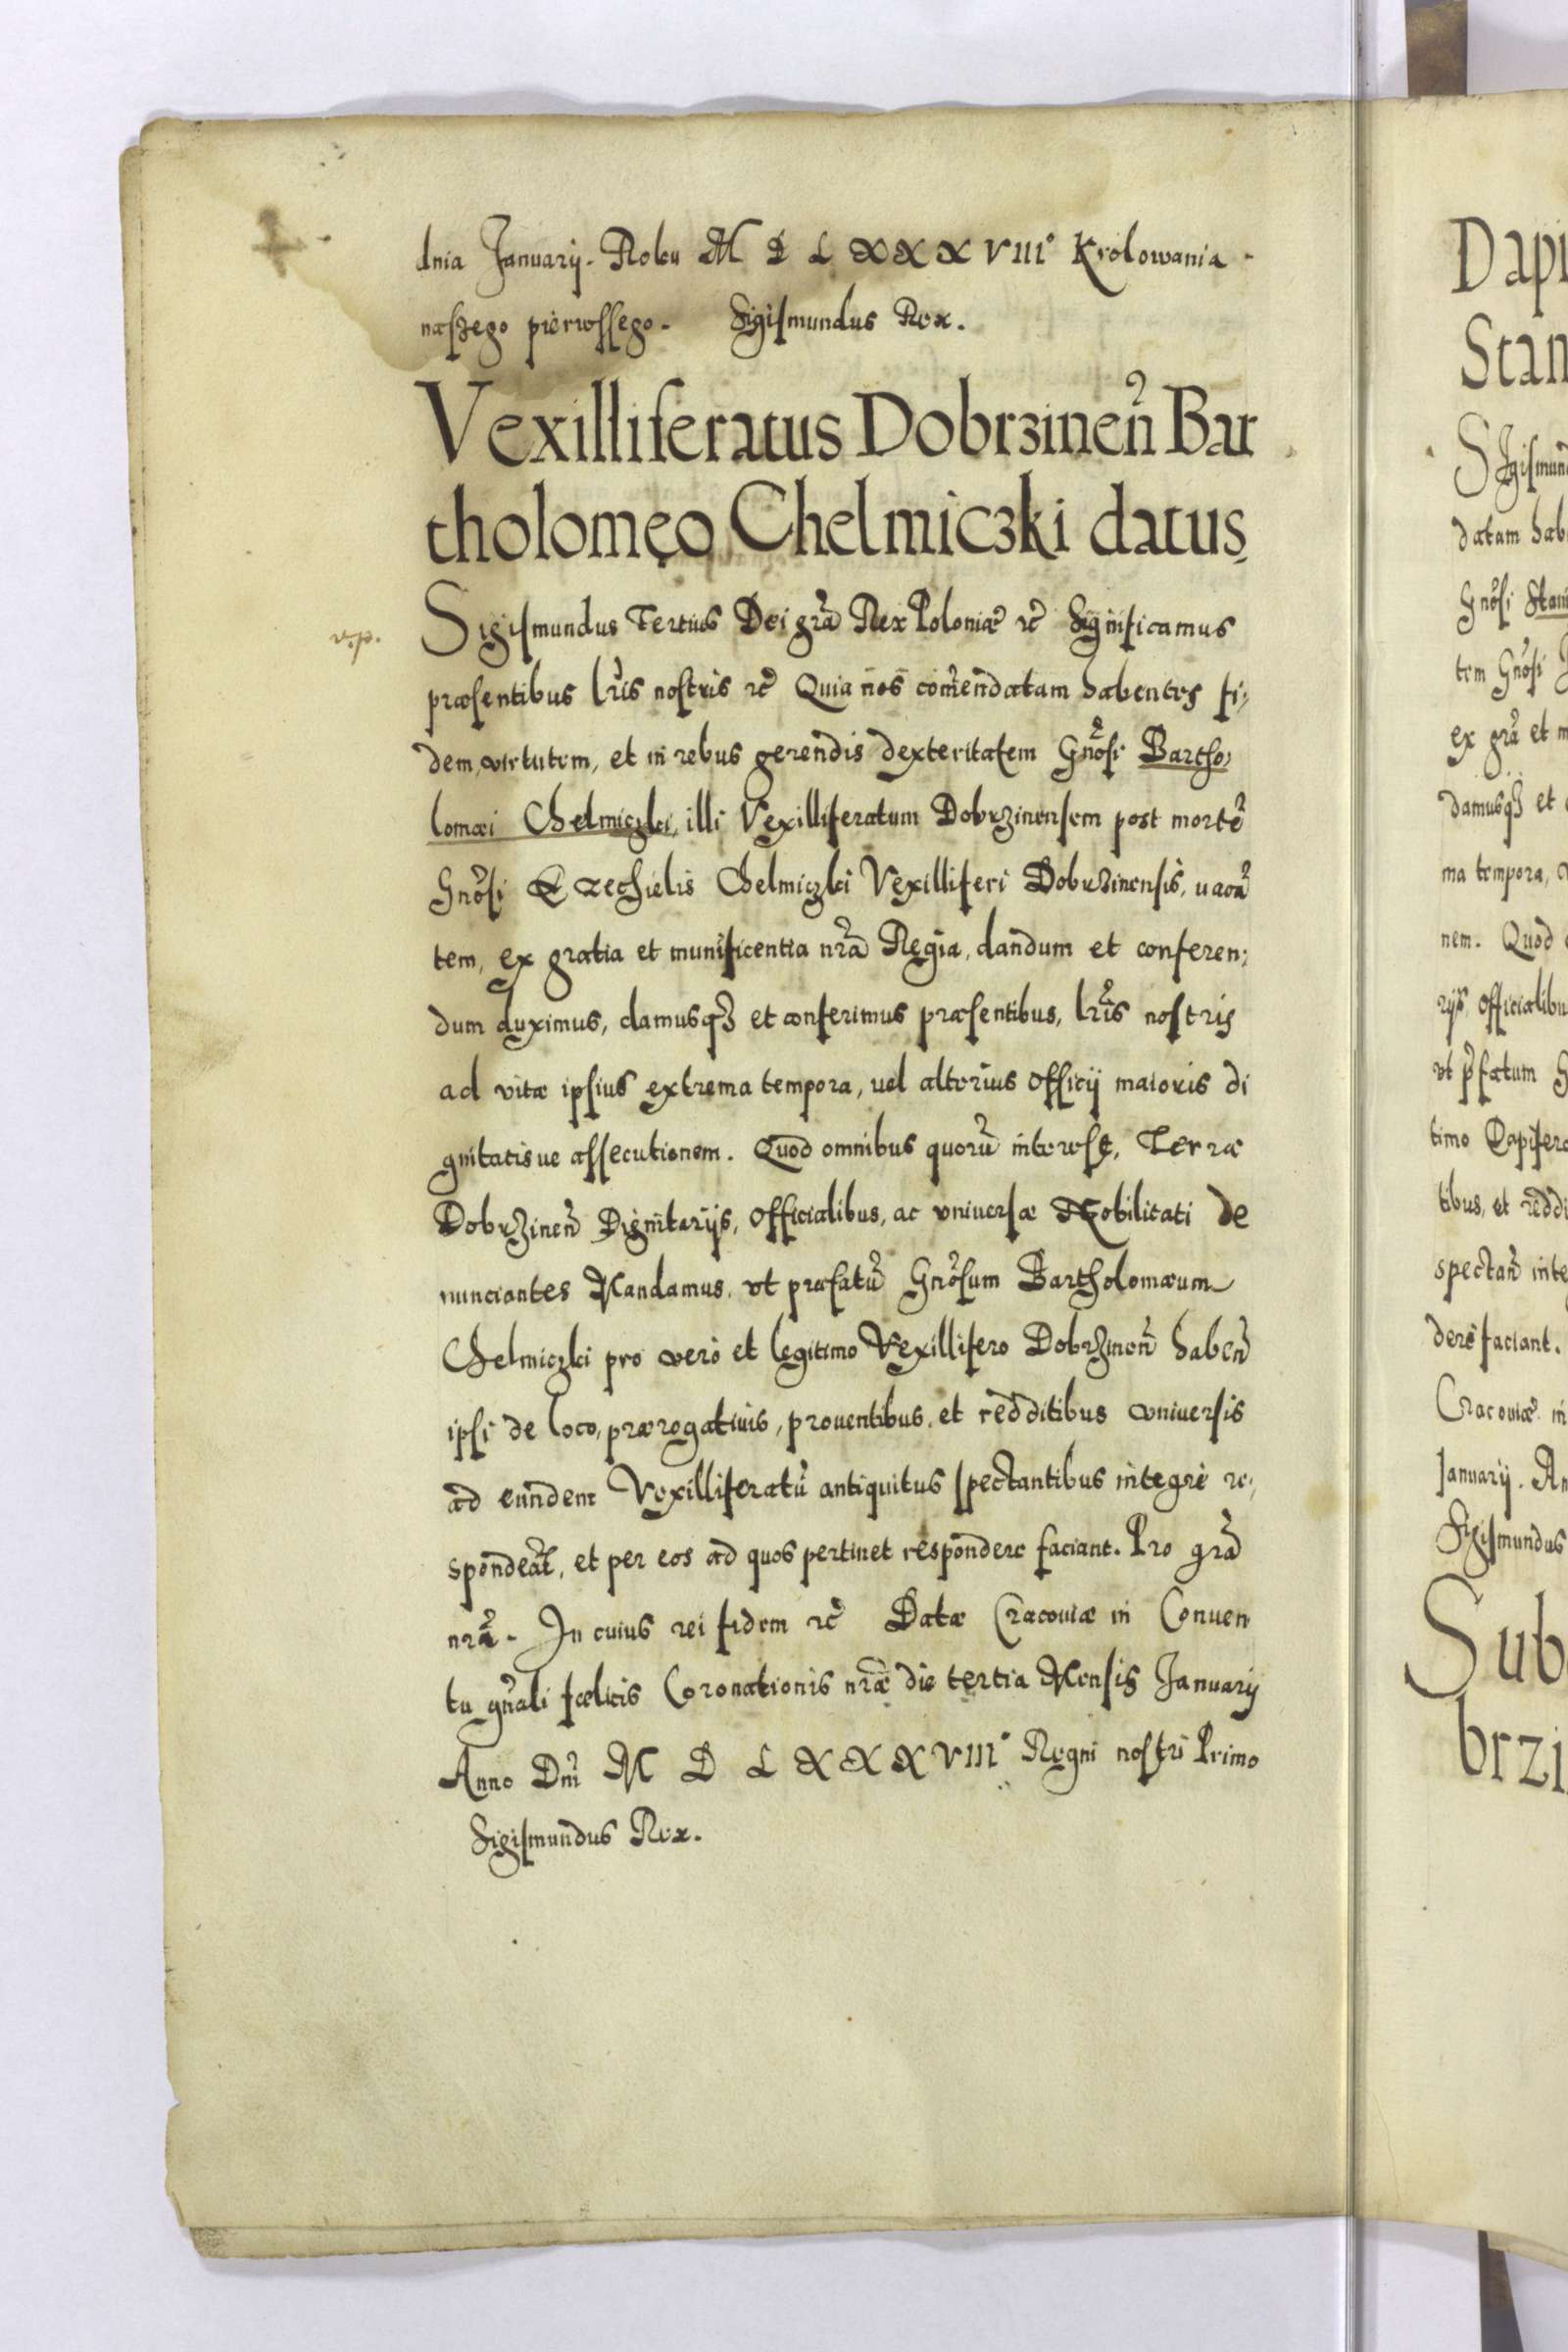 dnia Januarij. Roku M D L XXX VIII° Krolowania
naszego pierwssego. Sigismundus Rex.
Vexilliferatus Dobrzineñ Bar
tholomęo Chelmiczki datus
v. p.
Sigismundus Tertius Dei grã Rex Poloniæ ꝛc̃ Significamus
præsentibus lr̃is nostris ꝛc̃ Quia nos com̃endatam habentes fi,
dem, virtutem, et in rebus gerendis dexteritatem Gnõsi Bartho,
lomæi Chelmiczki, illi Vexilliferatum Dobrzinensem post mortẽ
Gnõsi Ezechielis Chelmiczki Vexilliferi Dobrzinensis, uacañ
tem, ex gratia et munificentia nr̃a Regia, dandum et conferen,
dum duximus, damusqꝫ et conferimus præsentibus, lr̃is nostris
ad vitæ ipsius extrema tempora, uel alterius officij maioris di
gnitatisue assecutionem. Quod omnibus quorũ interest, Terræ
Dobrzineñ Dignitarijs, Officialibus, ac vniuersæ Nobilitati de
nunciantes Mandamus, vt præfatũ Gnõsum Bartholomæum
Chelmiczki pro vero et legitimo Vexillifero Dobrzineñ habeñ
ipsi de loco, prærogatiuis, prouentibus, et redditibus vniuersis
ad eundem Vexilliferatũ antiquitus spectantibus integre re,
spondeãt, et per eos ad quos pertinet respondere faciant. Pro grã
nr̃a. In cuius rei fidem ꝛc̃ Datæ Cracouiæ in Conuen
tu gñali fœlicis Coronationis nr̃æ die tertia Mensis Januarij
Anno Dñi M D L XXX VIII° Regni nostri Primo
Sigismundus Rex.
Dapi
Stan
SIgismun
datam hab
Gnõsi Stani
tem Gnõsi J
ex grã et m
damusqꝫ et
ma tempora,
nem. Quod
rijs, Officialibu
vt p̃fatum G
timo Dapifero
tibus, et reddi
spectañ inte
dere faciant.
Cracouiæ in
Januarij. An
Sigismundus
Sub
brzi